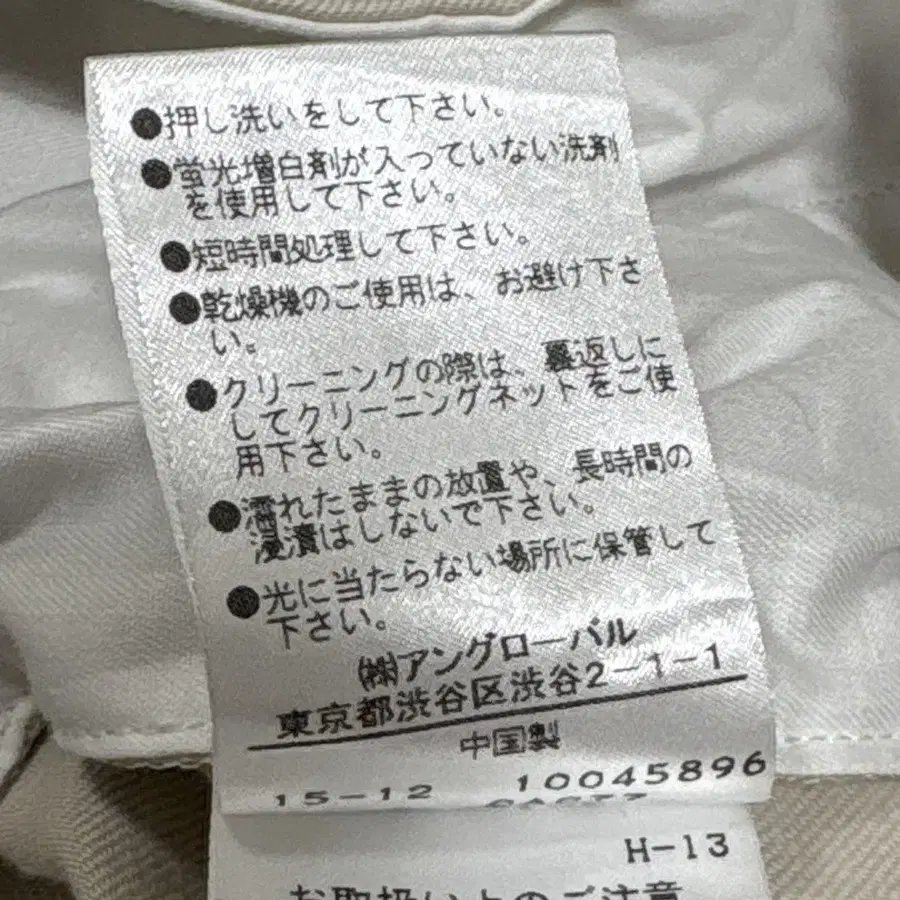 ●押し洗いをして下さい。
●蛍光増白剤が入っていない洗剤
を使用して下さい。
●短時間処理して下さい。
●乾燥機のご使用は、お避け下さ
い。
●クリーニングの際は、裏返しに
してクリーニングネットをご使
用下さい。
●濡れたままの放置や、長時間の
浸漬はしないで下さい。
●光に当たらない場所に保管して
下さい。
㈱アングローバル
東京都渋谷区渋谷2-1-1
中国製
15-12 10045896
H-13
お取扱い上のご注意